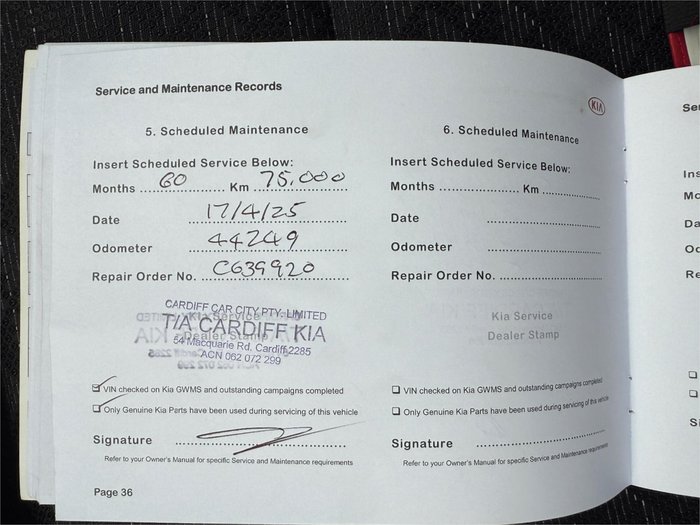 Service and Maintenance Records
KIA
5. Scheduled Maintenance
Insert Scheduled Service Below:
Months 60 Km 75,000
Date 17/4/25
Odometer 44249
Repair Order No. C639920
CARDIFF CAR CITY PTY. LIMITED
T/A CARDIFF KIA
64 Macquarie Rd. Cardiff 2285
ACN 062 072 299
Kia Service
Dealer Stamp
VIN checked on Kia GWMS and outstanding campaigns completed
Only Genuine Kia Parts have been used during servicing of this vehicle
Signature
Refer to your Owner's Manual for specific Service and Maintenance requirements
Page 36
6. Scheduled Maintenance
Insert Scheduled Service Below:
Months Km
Date
Odometer
Repair Order No.
Kia Service
Dealer Stamp
VIN checked on Kia GWMS and outstanding campaigns completed
Only Genuine Kia Parts have been used during servicing of this vehicle
Signature
Refer to your Owner's Manual for specific Service and Maintenance requirements